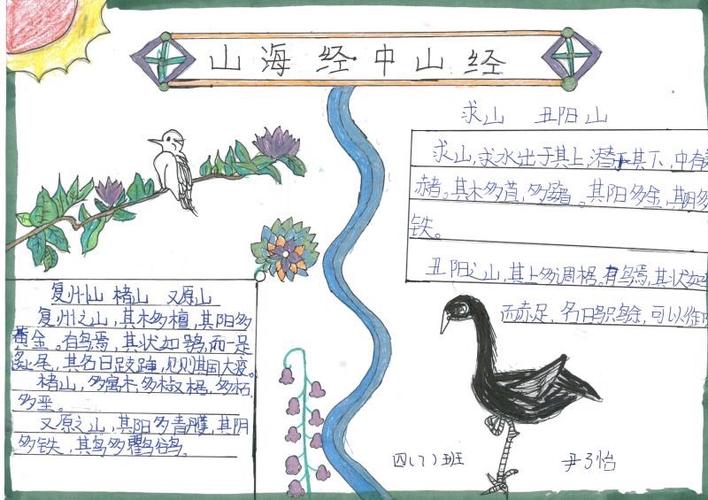 山海经中山经
求山 丑阳山
求山,求水出于其上,潜于其下,中有
赭。其木多苴,多䉋。其阳多金,其阴多
铁。
丑阳之山,其上多椆椐。有鸟焉,其状如
而赤足,名曰䳅鵌,可以御
复州山 楮山 又原山
复州之山,其木多檀,其阳多
黄金。有鸟焉,其状如鸮,而一足
彘尾,其名曰跂踵,见则其国大疫。
楮山,多寓木,多椒椐,多柘,
多垩。
又原之山,其阳多青雘,其阴
多铁,其鸟多鸜鹆。
四(7)班 尹子怡